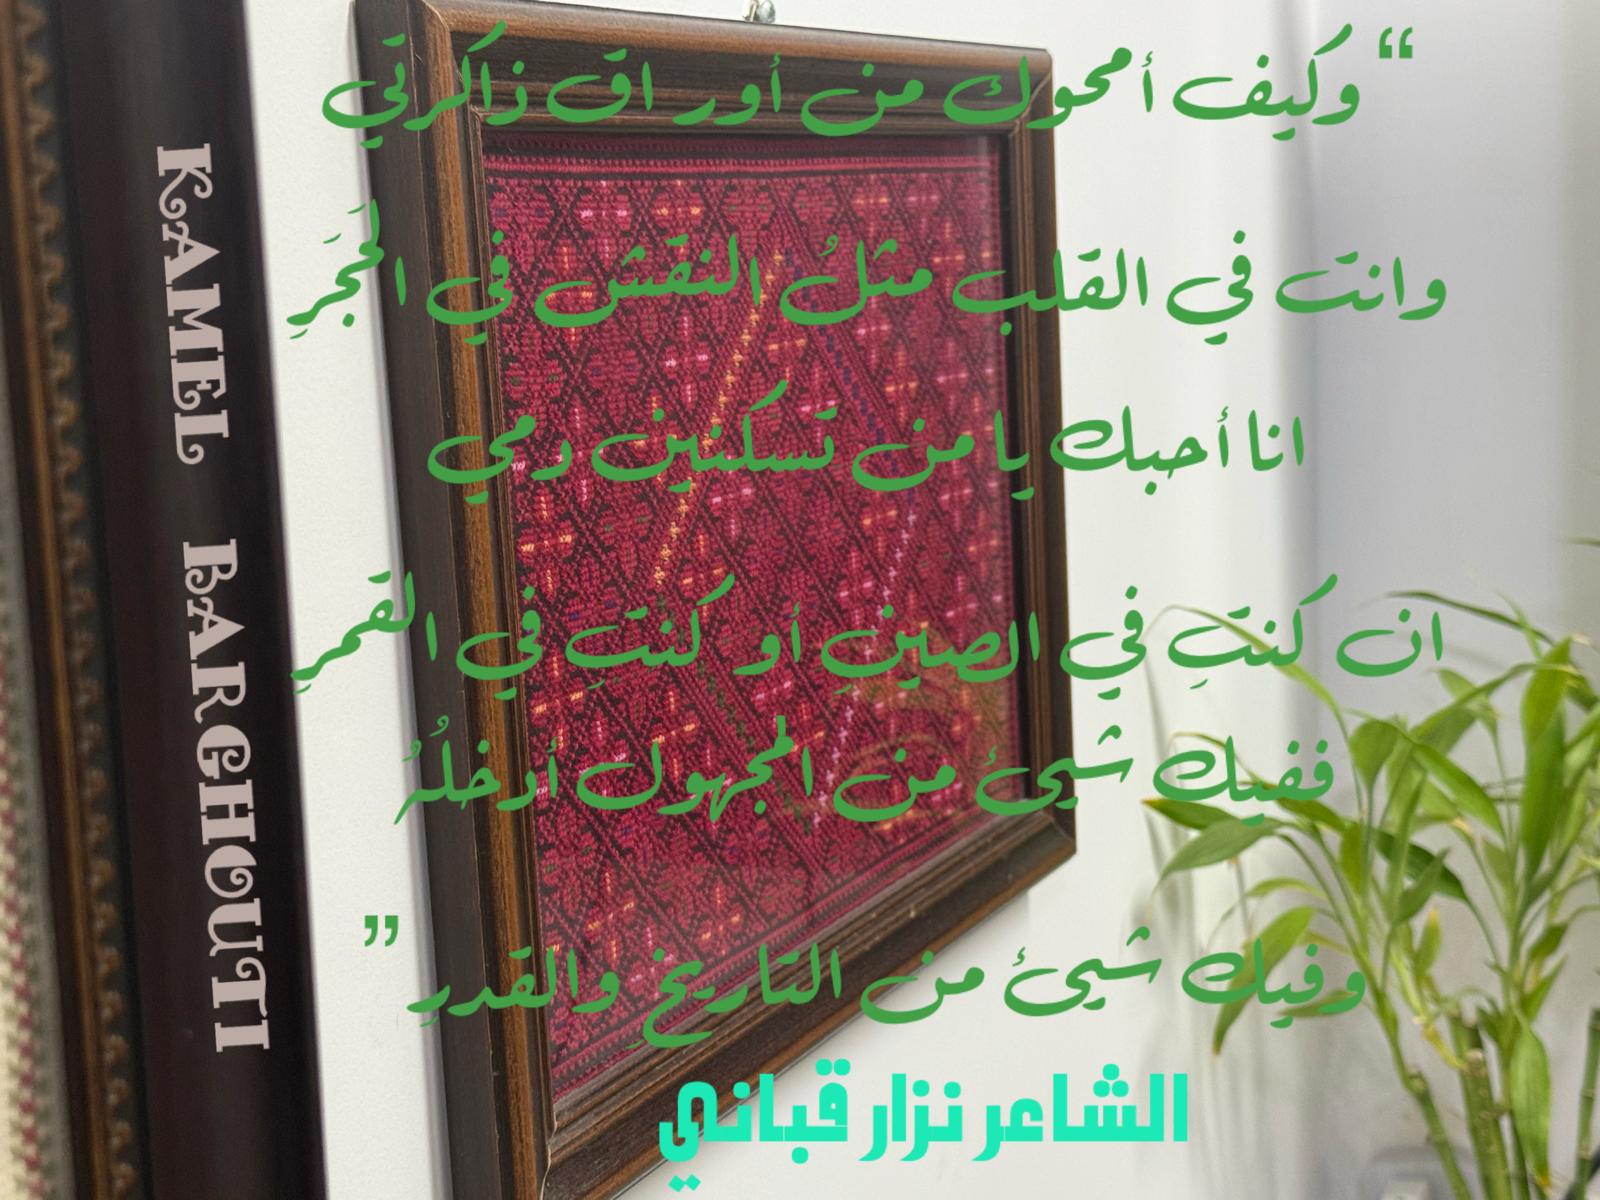 “ وكيف أمحوك من أوراق ذاكرتي
وانت في القلب مثلُ النقش في الحَجَرِ
انا أحبك يا من تسكنين دمي
ان كنتِ في الصينِ أو كنتِ في القمرِ
ففيك شيئ من المجهول أدخلُهُ
وفيك شيئ من التاريخِ والقدرِ ”
الشاعر نزار قباني
KAMEL BARGHOUTI